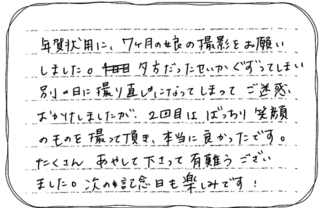 年賀状用に、7ヶ月の娘の撮影をお願い
しました。夕方だったせいかぐずってしまい
別の日に撮り直しになってしまって ご迷惑
おかけしましたが、2回目は ばっちり 笑顔
のものを撮って頂き、本当に良かったです。
たくさん あやして下さって有難うござい
ました。次の記念日も楽しみです！